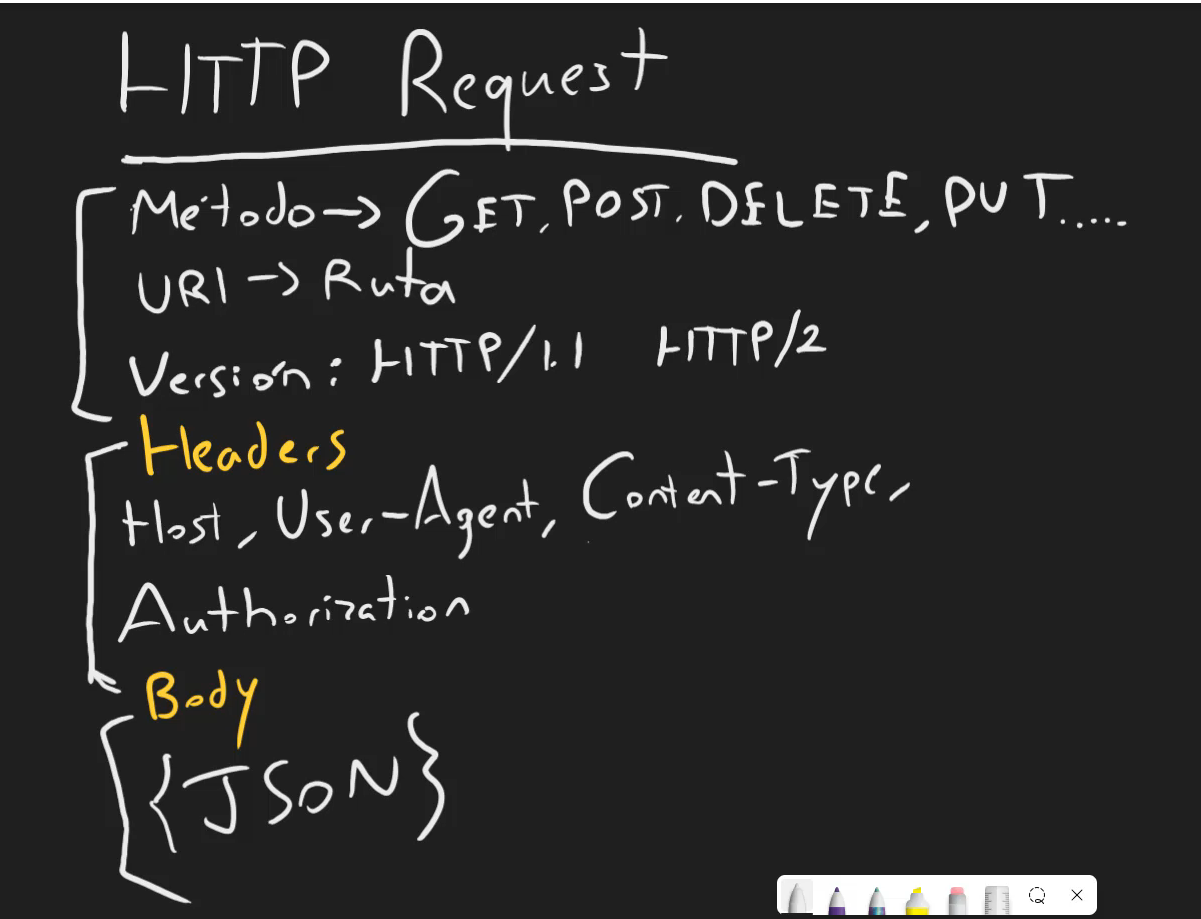 HTTP Request
Método → GET, POST, DELETE, PUT.....
URI → Ruta
Versión: HTTP/1.1 HTTP/2
Headers
Host, User-Agent, Content-Type,
Authorization
Body
{JSON}